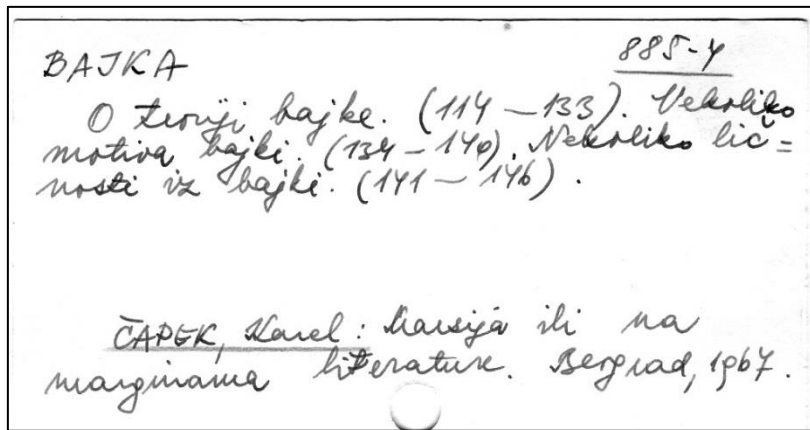 BAJKA 885-4
O teoriji bajke. (114 — 133). Nekoliko
motiva bajki. (134 — 140). Nekoliko lič=
nosti iz bajki. (141 — 146).
ČAPEK, Karel: Marsija ili na
marginama literature. Beograd, 1967.